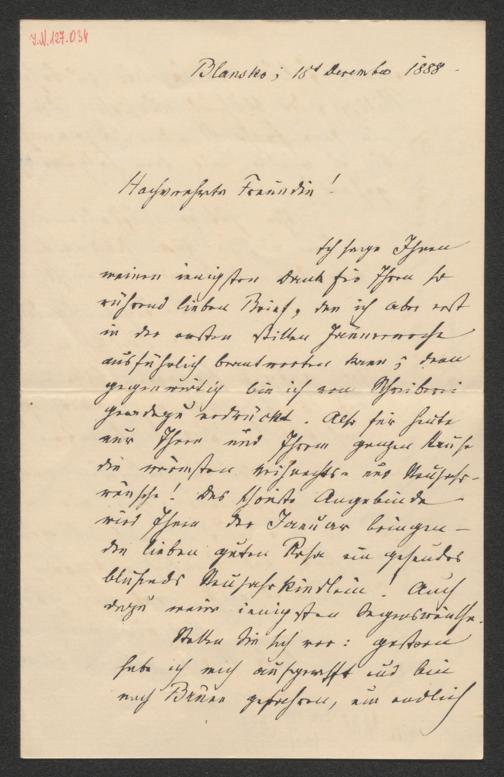 J.N. 127.034
Blansko; 18t December 1888.
Hochverehrte Freundin!
Ich sage Ihnen
meinen innigsten Dank für Ihren so
rührend lieben Brief, den ich aber erst
in der ersten stillen Jännerwoche
ausführlich beantworten kann; denn
gegenwärtig bin ich von Schreiberei
geradezu erdrückt. Also für heute
nur Ihnen und Ihrem ganzen Hause
die wärmsten Weihnachts- und Neujahrs-
wünsche! Das schönste Angebinde
wird Ihnen der Januar bringen –
die lieben guten Rosa ein gesundes
blühends Neujahrskindlein! Auch
dazu meine innigsten Segenswünsche.
Stellen Sie sich vor: gestern
habe ich mich aufgerafft und bin
nach Brünn gefahren, um endlich